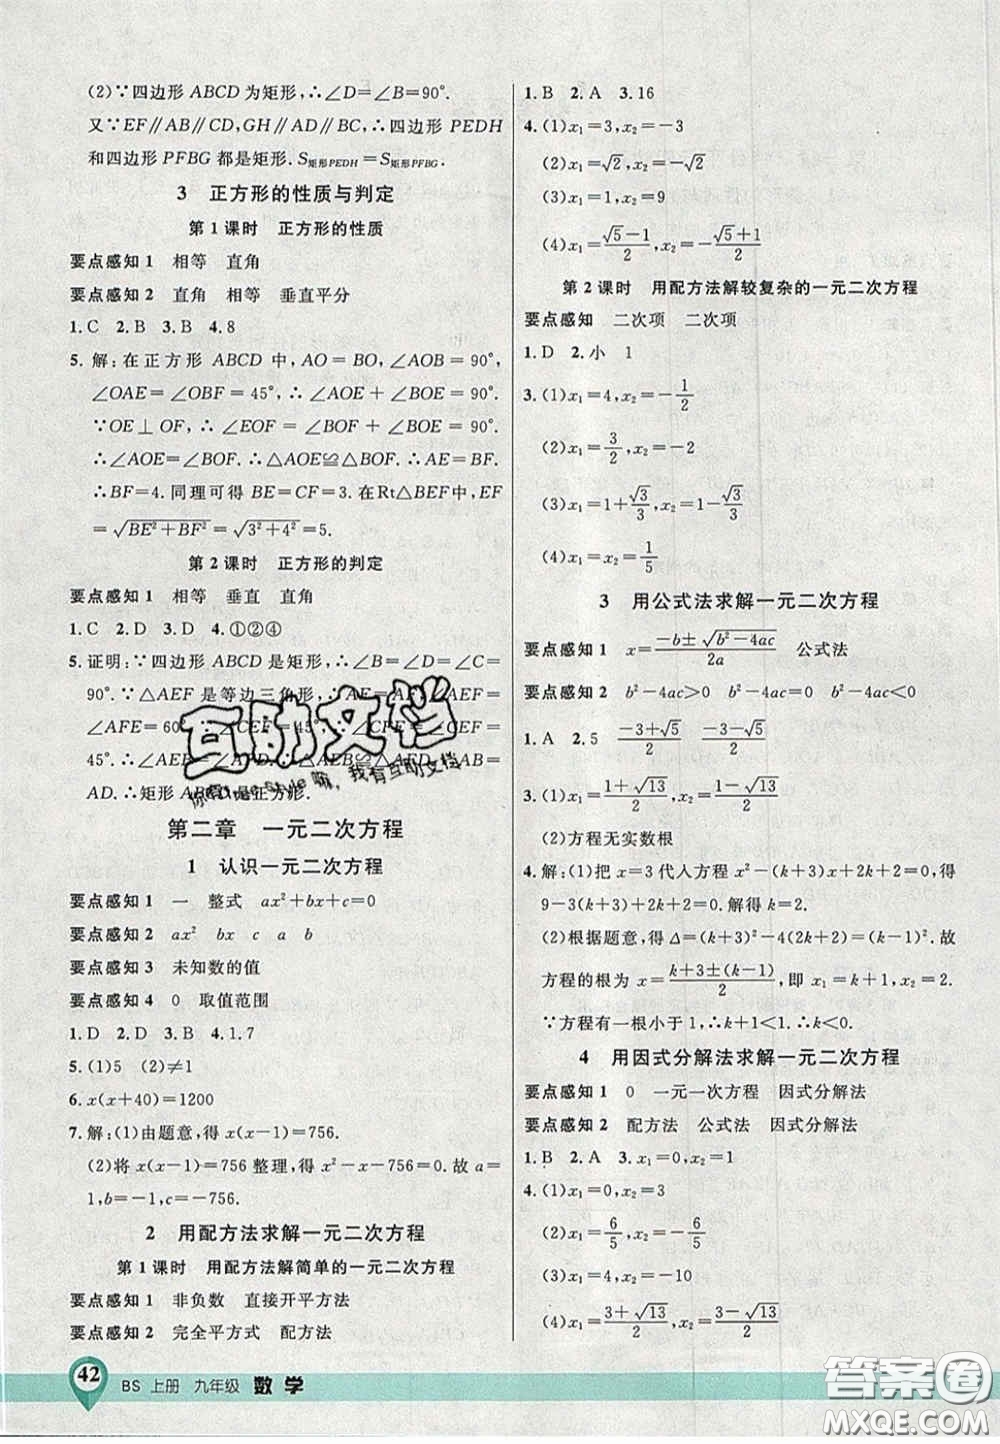 (2)∵四边形 ABCD 为矩形,∴∠D=∠B=90°.
又∵EF∥AB∥CD,GH∥AD∥BC,∴四边形 PEDH
和四边形 PFBG 都是矩形.S矩形PEDH=S矩形PFBG.
3 正方形的性质与判定
第1课时 正方形的性质
要点感知1 相等 直角
要点感知2 直角 相等 垂直平分
1.C 2.B 3.B 4.8
5.解:在正方形 ABCD 中,AO=BO,∠AOB=90°,
∠OAE=∠OBF=45°,∴∠AOE+∠BOE=90°.
∵OE⊥OF,∴∠EOF=∠BOF+∠BOE=90°.
∴∠AOE=∠BOF.∴△AOE≌△BOF.∴AE=BF.
∴BF=4.同理可得 BE=CF=3.在Rt△BEF中,EF
=√(BE²+BF²)=√(3²+4²)=5.
第2课时 正方形的判定
要点感知1 相等 垂直 直角
1.C 2.D 3.D 4.①②④
5.证明:∵四边形 ABCD 是矩形,∴∠B=∠D=∠C=
90°.∵△AEF 是等边三角形,∴AE=AF,∠AEF=
∠AFE=60°.又∵∠CEF=45°,∴∠CFE=∠CEF=
45°.∴∠AFD=∠AEB=75°.∴△ABE≌△ADF.∴AB=
AD.∴矩形 ABCD 是正方形.
第二章 一元二次方程
1 认识一元二次方程
要点感知1 一 整式 ax²+bx+c=0
要点感知2 ax² bx c a b
要点感知3 未知数的值
要点感知4 0 取值范围
1.D 2.D 3.B 4.1.7
5.(1)5 (2)≠1
6.x(x+40)=1200
7.解:(1)由题意,得 x(x-1)=756.
(2)将 x(x-1)=756 整理,得 x²-x-756=0.故 a=
1,b=-1,c=-756.
2 用配方法求解一元二次方程
第1课时 用配方法解简单的一元二次方程
要点感知1 非负数 直接开平方法
要点感知2 完全平方式 配方法
1.B 2.A 3.16
4.(1)x₁=3,x₂=-3
(2)x₁=√2,x₂=-√2
(3)x₁=1,x₂=9
(4)x₁=(√5-1)/2,x₂=-(√5+1)/2
第2课时 用配方法解较复杂的一元二次方程
要点感知 二次项 二次项
1.D 2.小 1
3.(1)x₁=4,x₂=-1/2
(2)x₁=3/2,x₂=-2
(3)x₁=1+√3/3,x₂=1-√3/3
(4)x₁=x₂=1/5
3 用公式法求解一元二次方程
要点感知1 x=(-b±√(b²-4ac))/2a 公式法
要点感知2 b²-4ac>0 b²-4ac<0
1.A 2.5 (-3+√5)/2 (-3-√5)/2
3.(1)x₁=(1+√13)/2,x₂=(1-√13)/2
(2)方程无实数根
4.解:(1)把 x=3 代入方程 x²-(k+3)x+2k+2=0,得
9-3(k+3)+2k+2=0.解得 k=2.
(2)根据题意,得 Δ=(k+3)²-4(2k+2)=(k-1)².故
方程的根为 x=(k+3±(k-1))/2,即 x₁=k+1,x₂=2.
∵方程有一根小于1,∴k+1<1.∴k<0.
4 用因式分解法求解一元二次方程
要点感知1 0 一元一次方程 因式分解法
要点感知2 配方法 公式法 因式分解法
1.B 2.A 3.x₁=0,x₂=1
4.(1)x₁=0,x₂=3
(2)x₁=6/5,x₂=-6/5
(3)x₁=4,x₂=-10
(4)x₁=(3+√13)/2,x₂=(3-√13)/2
42 BS 上册 九年级 数学
互助文档
答案圈
MXQE.COM